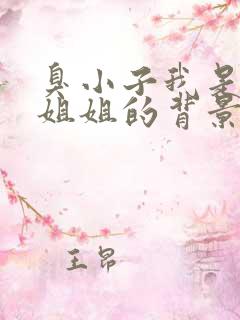 臭小子我是
姐姐的背景
王昂